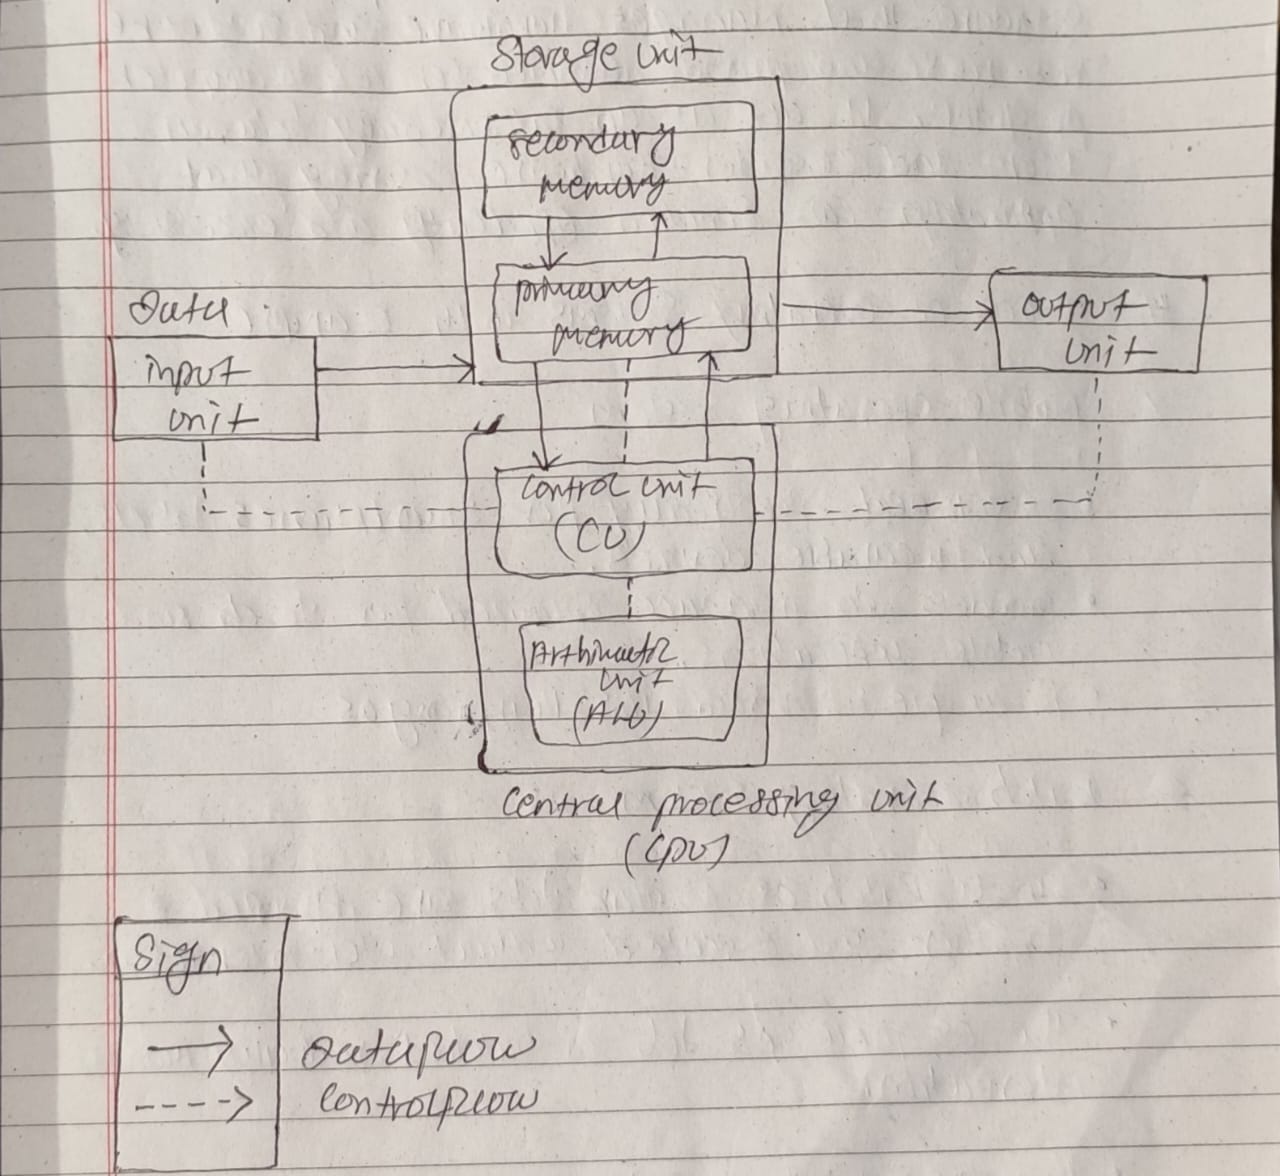 Storage unit
secondary
memory
primary
memory
Data
input
unit
output
unit
control unit
(CU)
Arthimetic
unit
(ALU)
Central processing unit
(CPU)
Sign
Dataflow
Controlflow